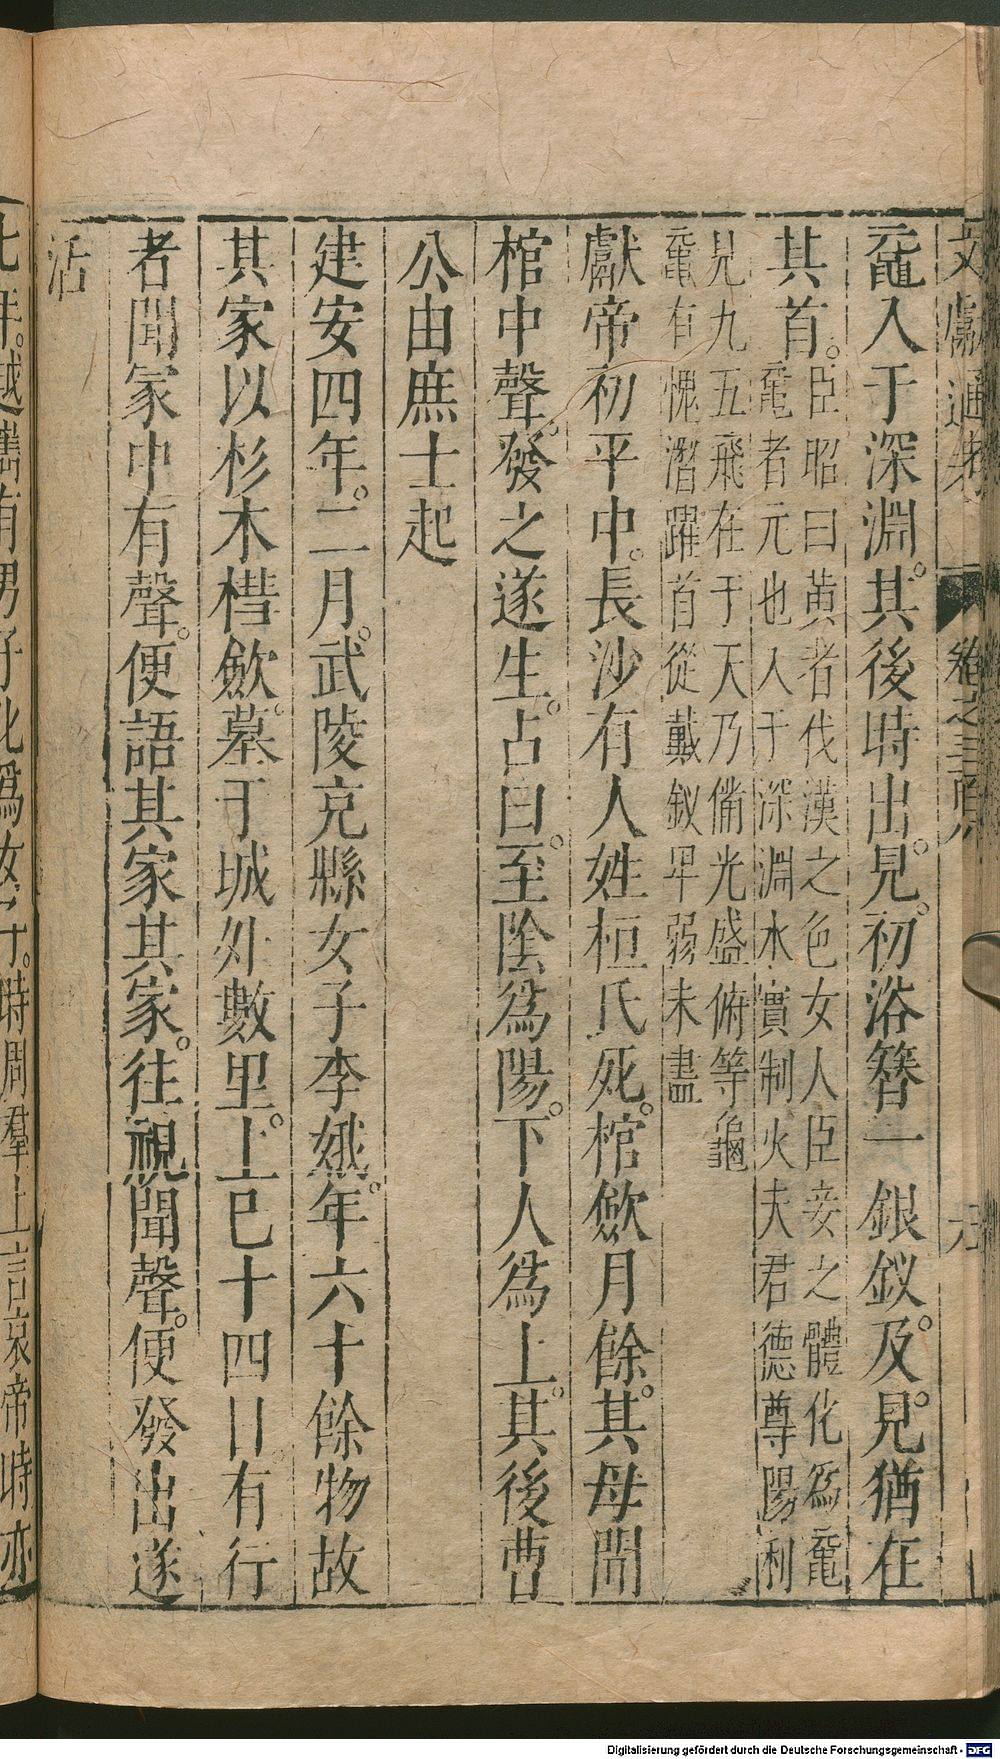 文獻通考 卷之三百
黿入于深淵。其後時出見。初浴簪一銀釵。及見。猶在
其首。臣昭曰黃者代漢之色女人臣妾之體化爲黿
黿者元也入于深淵水實制火夫君德尊陽利
見九五飛在于天乃備光盛俯等龜
黿有愧潛躍首從戴釵卑弱未盡
獻帝初平中。長沙有人姓桓氏死。棺斂月餘。其母聞
棺中聲。發之遂生。占曰。至陰爲陽。下人爲上。其後曹
公由庶士起
建安四年。二月。武陵充縣女子李娥。年六十餘物故
其家以杉木槥斂。墓于城外數里。上巳十四日有行
者聞家中有聲。便語其家其家。往視聞聲。便發出遂
活
七年。越巂有男子化爲女子。時周羣上言哀帝時亦
Digitalisierung gefördert durch die Deutsche Forschungsgemeinschaft - DFG